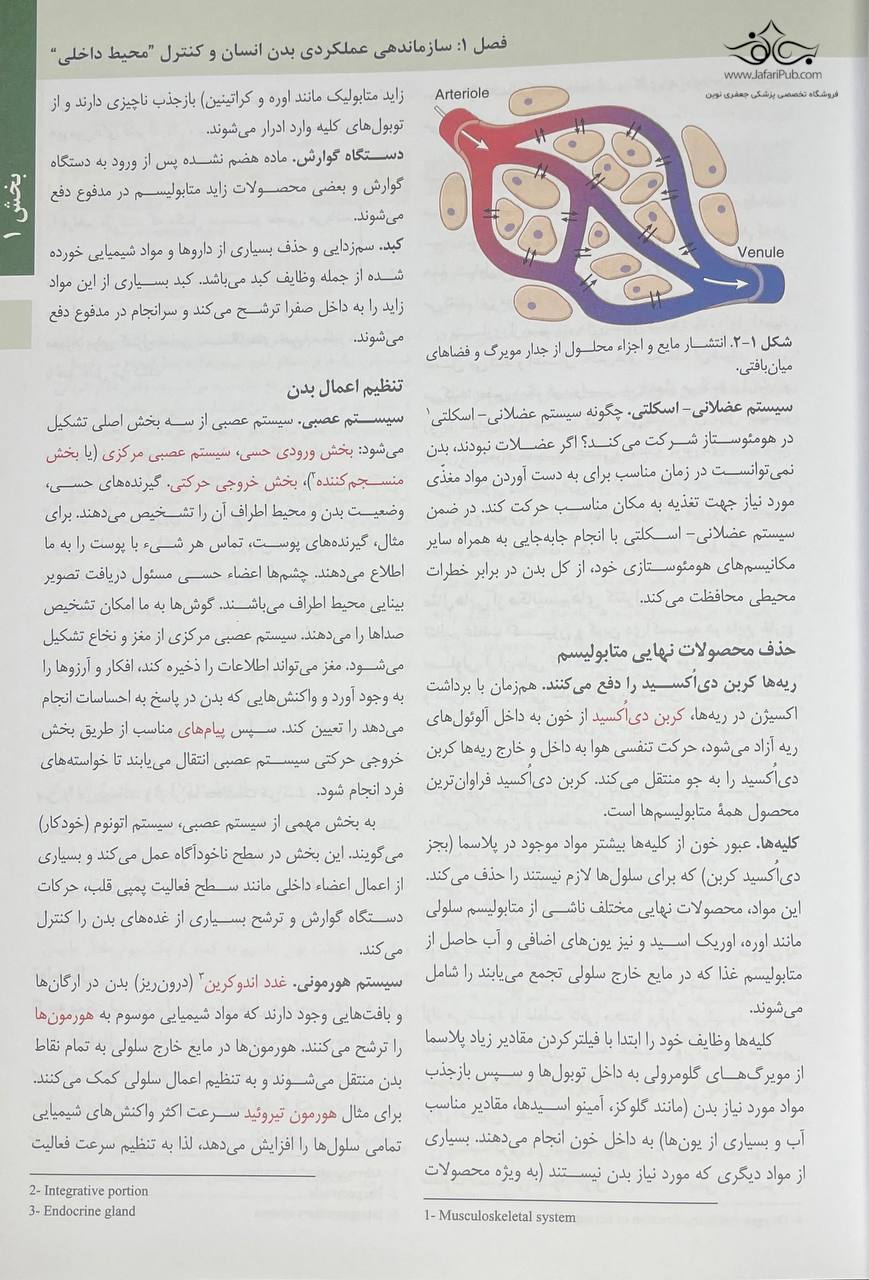 فصل ۱: سازماندهی عملکردی بدن انسان و کنترل "محیط داخلی"
www.JafariPub.com
فروشگاه تخصصی پزشکی جعفری نوین
بخش ۱
Arteriole
Venule
شکل ۱-۲. انتشار مایع و اجزاء محلول از جدار مویرگ و فضاهای
میان‌بافتی.
سیستم عضلانی- اسکلتی. چگونه سیستم عضلانی- اسکلتی۱
در هومئوستاز شرکت می‌کند؟ اگر عضلات نبودند، بدن
نمی‌توانست در زمان مناسب برای به دست آوردن مواد مغذّی
مورد نیاز جهت تغذیه به مکان مناسب حرکت کند. در ضمن
سیستم عضلانی- اسکلتی با انجام جابه‌جایی به همراه سایر
مکانیسم‌های هومئوستازی خود، از کل بدن در برابر خطرات
محیطی محافظت می‌کند.
حذف محصولات نهایی متابولیسم
ریه‌ها کربن دی‌اُکسید را دفع می‌کنند. هم‌زمان با برداشت
اکسیژن در ریه‌ها، کربن دی‌اُکسید از خون به داخل آلوئول‌های
ریه آزاد می‌شود، حرکت تنفسی هوا به داخل و خارج ریه‌ها کربن
دی‌اُکسید را به جو منتقل می‌کند. کربن دی‌اُکسید فراوان‌ترین
محصول همهٔ متابولیسم‌ها است.
کلیه‌ها. عبور خون از کلیه‌ها بیشتر مواد موجود در پلاسما (بجز
دی‌اُکسید کربن) که برای سلول‌ها لازم نیستند را حذف می‌کند.
این مواد، محصولات نهایی مختلف ناشی از متابولیسم سلولی
مانند اوره، اوریک اسید و نیز یون‌های اضافی و آب حاصل از
متابولیسم غذا که در مایع خارج سلولی تجمع می‌یابند را شامل
می‌شوند.
کلیه‌ها وظایف خود را ابتدا با فیلترکردن مقادیر زیاد پلاسما
از مویرگ‌های گلومرولی به داخل توبول‌ها و سپس بازجذب
مواد مورد نیاز بدن (مانند گلوکز، آمینو اسیدها، مقادیر مناسب
آب و بسیاری از یون‌ها) به داخل خون انجام می‌دهند. بسیاری
از مواد دیگری که مورد نیاز بدن نیستند (به ویژه محصولات
1- Musculoskeletal system
زاید متابولیک مانند اوره و کراتینین) بازجذب ناچیزی دارند و از
توبول‌های کلیه وارد ادرار می‌شوند.
دستگاه گوارش. ماده هضم نشده پس از ورود به دستگاه
گوارش و بعضی محصولات زاید متابولیسم در مدفوع دفع
می‌شوند.
کبد. سم‌زدایی و حذف بسیاری از داروها و مواد شیمیایی خورده
شده از جمله وظایف کبد می‌باشد. کبد بسیاری از این مواد
زاید را به داخل صفرا ترشح می‌کند و سرانجام در مدفوع دفع
می‌شوند.
تنظیم اعمال بدن
سیستم عصبی. سیستم عصبی از سه بخش اصلی تشکیل
می‌شود: بخش ورودی حسی، سیستم عصبی مرکزی (یا بخش
منسجم‌کننده۲)، بخش خروجی حرکتی. گیرنده‌های حسی،
وضعیت بدن و محیط اطراف آن را تشخیص می‌دهند. برای
مثال، گیرنده‌های پوست، تماس هر شیء با پوست را به ما
اطلاع می‌دهند. چشم‌ها اعضاء حسی مسئول دریافت تصویر
بینایی محیط اطراف می‌باشند. گوش‌ها به ما امکان تشخیص
صداها را می‌دهند. سیستم عصبی مرکزی از مغز و نخاع تشکیل
می‌شود. مغز می‌تواند اطلاعات را ذخیره کند، افکار و آرزوها را
به وجود آورد و واکنش‌هایی که بدن در پاسخ به احساسات انجام
می‌دهد را تعیین کند. سپس پیام‌های مناسب از طریق بخش
خروجی حرکتی سیستم عصبی انتقال می‌یابند تا خواسته‌های
فرد انجام شود.
به بخش مهمی از سیستم عصبی، سیستم اتونوم (خودکار)
می‌گویند. این بخش در سطح ناخودآگاه عمل می‌کند و بسیاری
از اعمال اعضاء داخلی مانند سطح فعالیت پمپی قلب، حرکات
دستگاه گوارش و ترشح بسیاری از غده‌های بدن را کنترل
می‌کند.
سیستم هورمونی. غدد اندوکرین۳ (درون‌ریز) بدن در ارگان‌ها
و بافت‌هایی وجود دارند که مواد شیمیایی موسوم به هورمون‌ها
را ترشح می‌کنند. هورمون‌ها در مایع خارج سلولی به تمام نقاط
بدن منتقل می‌شوند و به تنظیم اعمال سلولی کمک می‌کنند.
برای مثال هورمون تیروئید سرعت اکثر واکنش‌های شیمیایی
تمامی سلول‌ها را افزایش می‌دهد، لذا به تنظیم سرعت فعالیت
2- Integrative portion
3- Endocrine gland